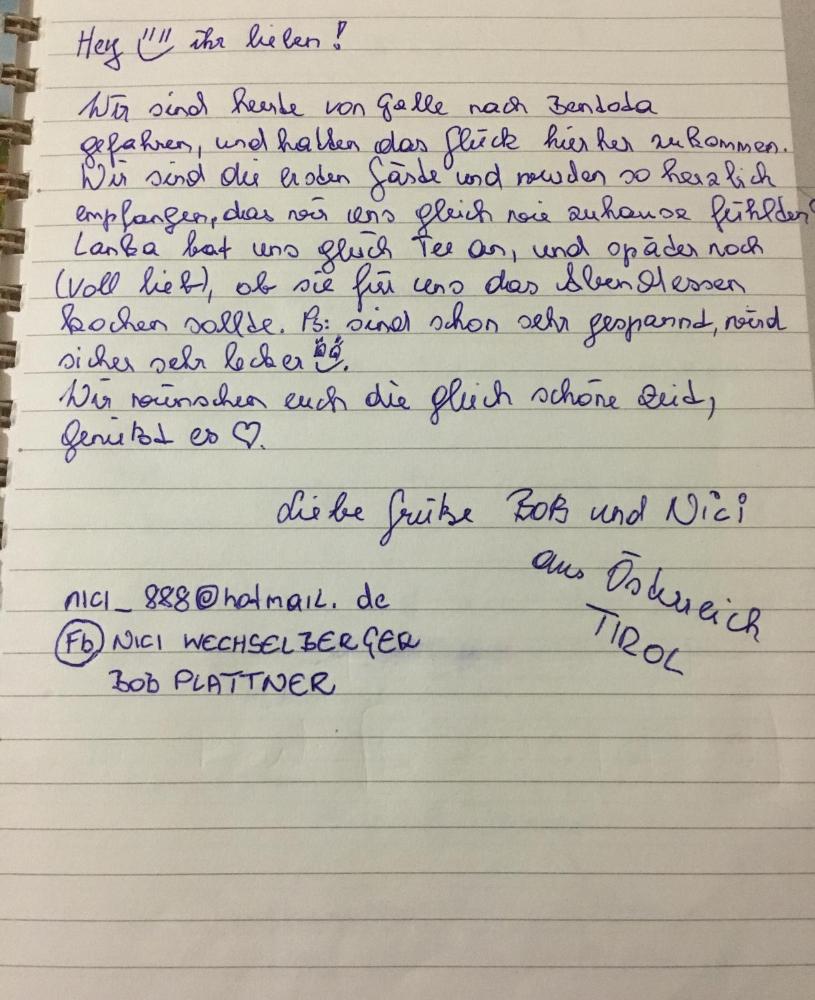 Hey ihr lieben!
Wir sind heute von Galle nach Bentota
gefahren, und hatten das Glück hierher zukommen.
Wir sind die ersten Gäste und wurden so herzlich
empfangen, das wir uns gleich wie zuhause fühlten
Lanka bat uns gleich Tee an, und später noch
(voll lieb), ob sie für uns das Abendessen
kochen sollte. Ps: sind schon sehr gespannt, wird
sicher sehr lecker.
Wir wünschen euch die gleich schöne Zeit,
genießt es ♡.
Liebe Grüße BOB und Nici
aus Österreich
TIROL
nici_888@hotmail.de
Fb NICI WECHSELBERGER
BOB PLATTNER